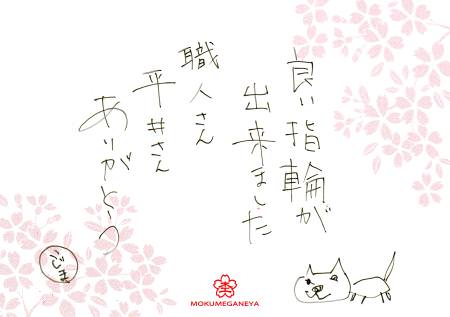 良い指輪が
出来ました
職人さん
平井さん
ありがとう
MOKUMEGANEYA